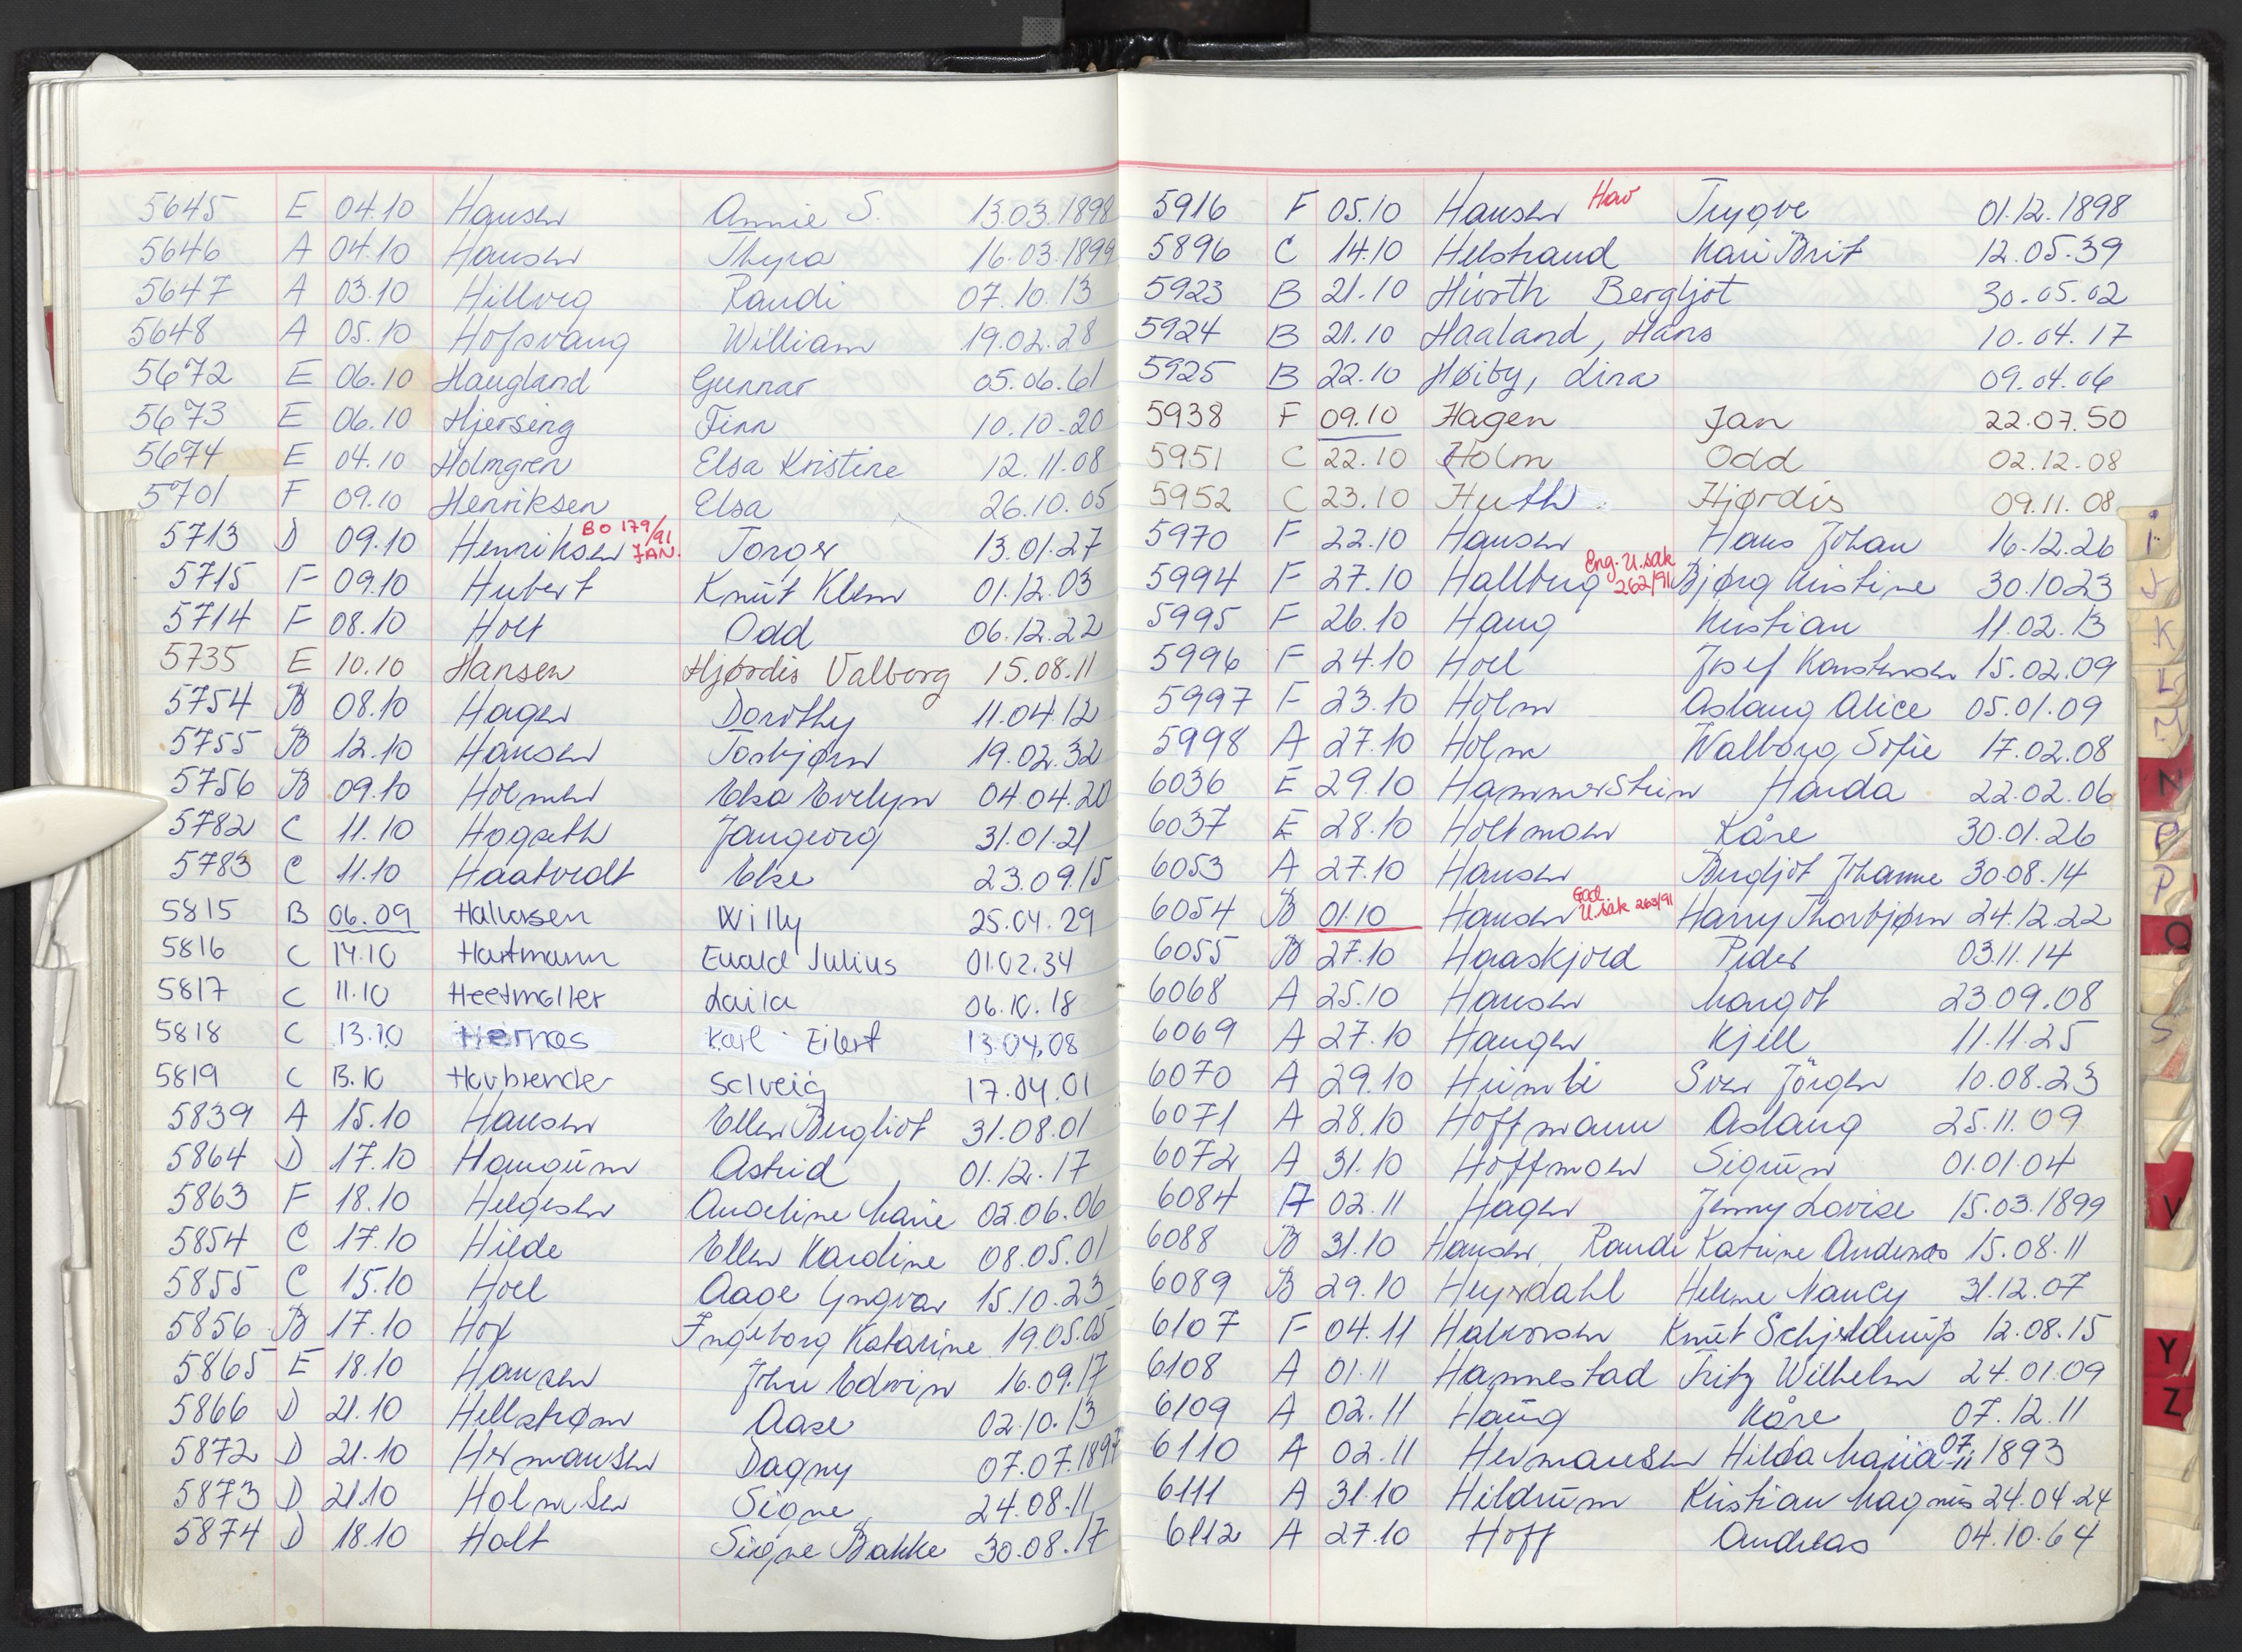 5645 E 04.10 Hansen Annie S. 13.03.1898
5646 A 04.10 Hansen Thyra 16.03.1899
5647 A 03.10 Hillvig Randi 07.10.13
5648 A 05.10 Hofsvang William 19.02.28
5672 E 06.10 Haugland Gunnar 05.06.61
5673 E 06.10 Hjersing Finn 10.10.20
5674 E 04.10 Holmgren Elsa Kristine 12.11.08
5701 F 09.10 Henriksen Elsa 26.10.05
5713 D 09.10 Henriksen BO 179/91 JAN. Torger 13.01.27
5715 F 09.10 Hubert Knut Klem 01.12.03
5714 F 08.10 Holt Odd 06.12.22
5735 E 10.10 Hansen Hjørdis Valborg 15.08.11
5754 B 08.10 Hagen Dorothy 11.04.12
5755 B 12.10 Hansen Torbjørn 19.02.32
5756 B 09.10 Holmen Elsa Evelyn 04.04.20
5782 C 11.10 Hogseth Jangeorg 31.01.21
5783 C 11.10 Haatvedt Else 23.09.15
5815 B 06.09 Halvorsen Willy 25.04.29
5816 C 14.10 Hartmann Evald Julius 01.02.34
5817 C 11.10 Heetmøller Laila 06.10.18
5818 C 13.10 Hernes Karl Eilert 13.04.08
5819 C 13.10 Havbrender Solveig 17.04.01
5839 A 15.10 Hansen Ellen Bergliot 31.08.01
5864 D 17.10 Haugum Astrid 01.12.17
5863 F 18.10 Helgesen Angeline Marie 02.06.06
5854 C 17.10 Hilde Ellen Karoline 08.05.01
5855 C 15.10 Hoel Aage Yngvar 15.10.23
5856 B 17.10 Hof Ingeborg Katarine 19.05.05
5865 E 18.10 Hansen John Edwin 16.09.17
5866 D 21.10 Hellstrøm Aase 02.10.13
5872 D 21.10 Hermansen Dagny 07.07.1897
5873 D 21.10 Holmsen Signe 24.08.11
5874 D 18.10 Holt Signe Bakke 30.08.17
5916 F 05.10 Hansen Hav Trygve 01.12.1898
5896 C 14.10 Helstrand Kari Brit 12.05.39
5923 B 21.10 Hirsth Bergljot 30.05.02
5924 B 21.10 Haaland, Hans 10.04.17
5925 B 22.10 Høiby, Lina 09.04.06
5938 F 09.10 Hagen Jan 22.07.50
5951 C 22.10 Holm Odd 02.12.08
5952 C 23.10 Huth Hjørdis 09.11.08
5970 F 22.10 Hansen Hans Johan 16.12.26
5994 F 27.10 Hallberg Eng. U.sak 262/91 Bjørg Kristine 30.10.23
5995 F 26.10 Haug Kristian 11.02.13
5996 F 24.10 Hoel Josef Konstensen 15.02.09
5997 F 23.10 Holm Aslaug Alice 05.01.09
5998 A 27.10 Holm Walborg Sofie 17.02.08
6036 E 29.10 Hammerstein Harda 22.02.06
6037 E 28.10 Holtmoen Kåre 30.01.26
6053 A 27.10 Hansen Bergljot Johanne 30.08.14
6054 B 01.10 Hansen God. U.sak 263/91 Harry Thorbjørn 24.12.22
6055 B 27.10 Haaskjold Peder 03.11.14
6068 A 25.10 Hansen Margot 23.09.08
6069 A 27.10 Haugen Kjell 11.11.25
6070 A 29.10 Heimli Sven Jörgen 10.08.23
6071 A 28.10 Hoffmann Aslaug 25.11.09
6072 A 31.10 Hoffmoen Sigrun 01.01.04
6084 A 02.11 Hagen Jenny Lovise 15.03.1899
6088 B 31.10 Hansen, Randi Katrine Andenæs 15.08.11
6089 B 29.10 Heyerdahl Helene Nancy 31.12.07
6107 F 04.11 Halvorsen Knut Schjelderup 12.08.15
6108 A 01.11 Hannestad Fritz Wilhelm 24.01.09
6109 A 02.11 Haug Kåre 07.12.11
6110 A 02.11 Hermansen Hilda Maria 07.11 1893
6111 A 31.10 Hildrum Kristian Magnus 24.04.24
6112 A 27.10 Hoff Andreas 04.10.64
i
J
K
L
M
N
O
P
Q
S
V
Y
Z